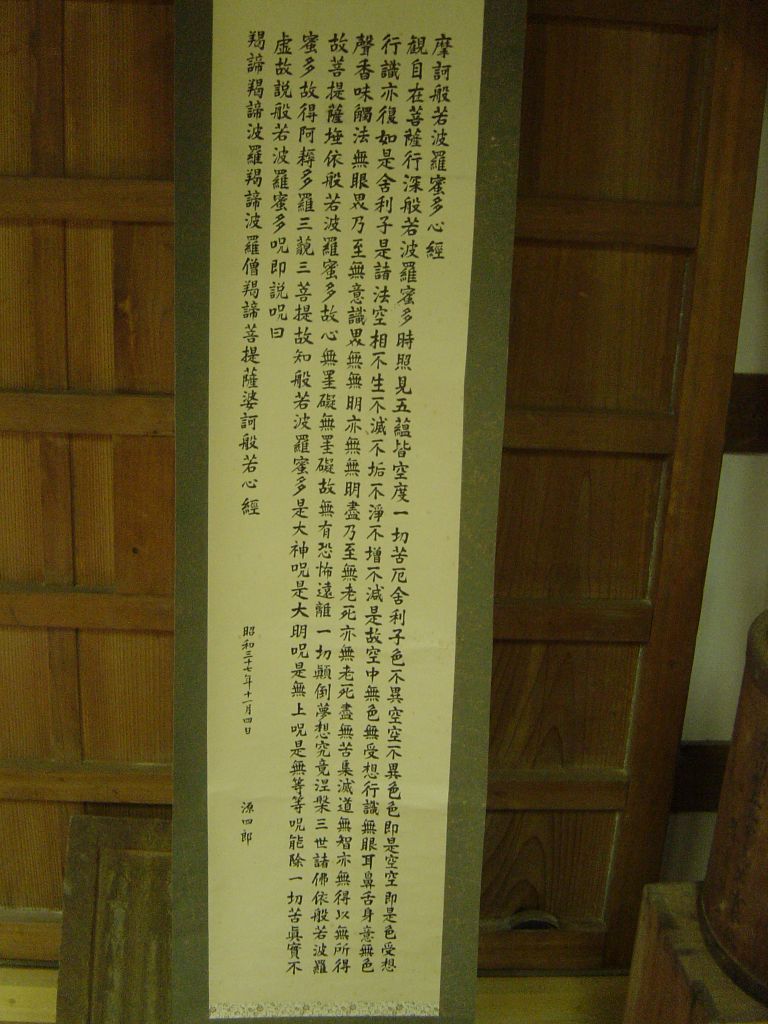 摩訶般若波羅蜜多心經
観自在菩薩行深般若波羅蜜多時照見五蘊皆空度一切苦厄舎利子色不異空空不異色色即是空空即是色受想
行識亦復如是舎利子是諸法空相不生不滅不垢不淨不增不減是故空中無色無受想行識無眼耳鼻舌身意無色
聲香味觸法無眼界乃至無意識界無無明亦無無明盡乃至無老死亦無老死盡無苦集滅道無智亦無得以無所得
故菩提薩埵依般若波羅蜜多故心無罣礙無罣礙故無有恐怖遠離一切顛倒夢想究竟涅槃三世諸佛依般若波羅
蜜多故得阿耨多羅三藐三菩提故知般若波羅蜜多是大神呪是大明呪是無上呪是無等等呪能除一切苦眞實不
虚故説般若波羅蜜多呪即説呪曰
羯諦羯諦波羅羯諦波羅僧羯諦菩提薩婆訶般若心經
昭和三十七年十一月四日
源四郎